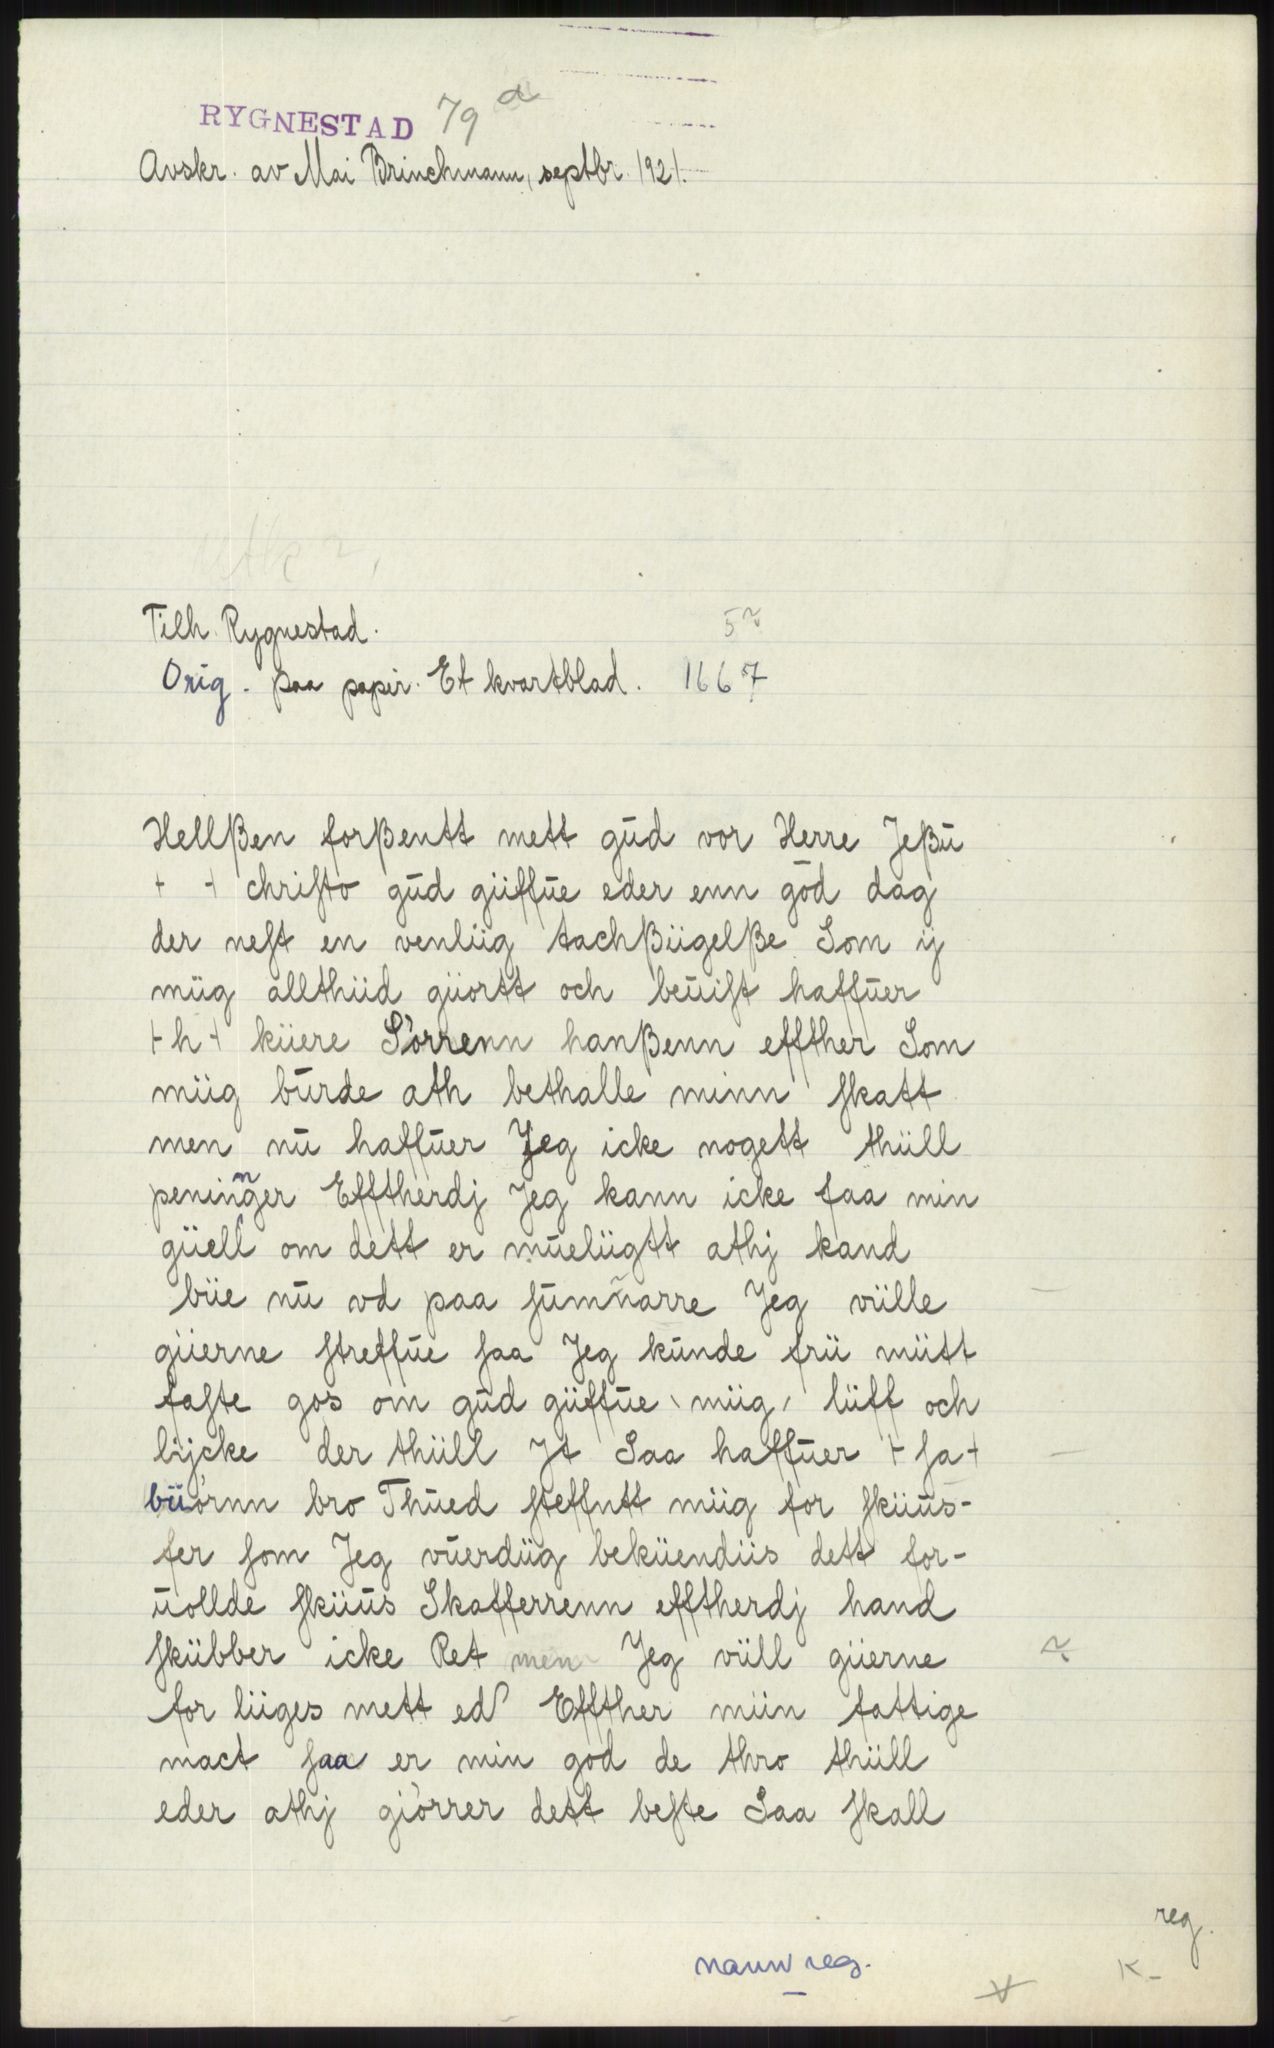 RYGNESTAD 79 a
Avskr. av Mai Brinchmann, septbr. 1921.
Tilh. Rygnestad.
Orig. paa papir. Et kvartblad. 1667
Hellßen forßentt mett gud vor Herre Jeßu
+ + chriſto gud güffue eder enn god dag
der neſt en venliig tachßiigelße Som ij
müg allthiid giortt och beuiſt haffuer
+ h + kiiere Sörrenn hanßenn effther Som
müig burde ath bethalle minn ſkatt
men nu haffuer Jeg icke nogett thüll
peninger Efftherdj Jeg kann icke faa min
güell om dett er mueliigtt athj kand
büe nu vd paa ſummarre Jeg vülle
giierne ſtreffue ſaa Jeg kunde frii miitt
faſte gos om gud güffue müig liiff och
lijcke der thiill Jt Saa haffuer + ſa +
büörnn bro Thued ſteffntt müig for ſkiius-
fer ſom Jeg vuerdiig bekiiendiis dett for-
uollde ſkiius Skafferrenn efftherdj hand
ſkübber icke Ret men Jeg viill giierne
for liiges mett ed Effther miin fattige
mact ſaa er min god de thro thiill
eder athj giörrer dett beſte Saa ſkall
reg.
navnreg.
K-